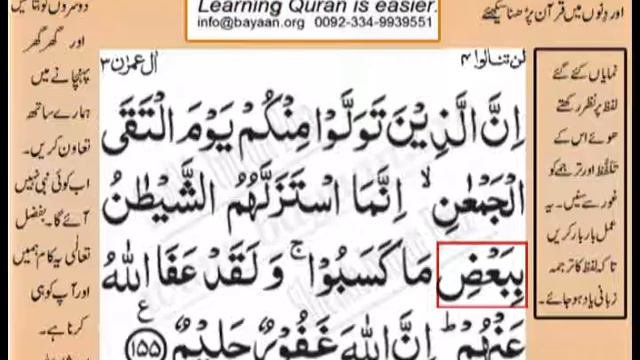 Learning Quran is easier.
info@bayaan.org 0092-334-9939551
اور دنوں میں قرآن پڑھنا سیکھئے
لن تنالوا ۴
اٰل عمرٰن ۳
اِنَّ الَّذِیْنَ تَوَلَّوْا مِنْكُمْ یَوْمَ الْتَقَی
الْجَمْعٰنِ ۙ اِنَّمَا اسْتَزَلَّهُمُ الشَّیْطٰنُ
بِبَعْضِ مَا كَسَبُوْا ۚ وَ لَقَدْ عَفَا اللّٰهُ
عَنْهُمْ ؕ اِنَّ اللّٰهَ غَفُوْرٌ حَلِیْمٌ ۱۵۵
ع
نمایاں کئے گئے
لفظ پر نظر رکھتے
ہوئے اس کے
تلفظ اور ترجمے کو
غور سے سنیں۔ یہ
عمل بار بار کریں
تاکہ لفظ کا ترجمہ
زبانی یاد ہو جائے۔
دوسروں کو بتائیں
اور گھر گھر
پہنچانے میں
ہمارے ساتھ
تعاون کریں۔
اب کوئی نبی نہیں
آئے گا۔ بفضل
تعالٰی یہ کام ہمیں
اور آپ کو ہی
کرنا ہے۔